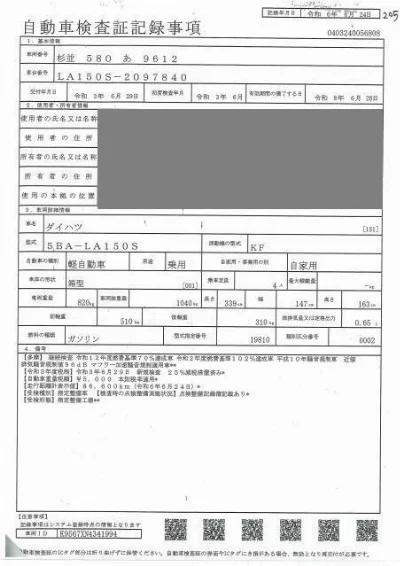 記録年月日 令和 6年 6月 24日
205
自動車検査証記録事項
0403240056808
1. 基本情報
車両番号 杉並 580 あ 9612
車台番号 LA150S-2097840
交付年月日 令和 3年 6月 29日 初度検査年月 令和 3年 6月 有効期間の満了する日 令和 8年 6月 28日
2. 使用者・所有者情報
使用者の氏名又は名称
使用者の住所
所有者の氏名又は名称
所有者の住所
使用の本拠の位置
3. 車両詳細情報
車名 ダイハツ [151]
型式 5BA-LA150S 原動機の型式 KF
自動車の種別 軽自動車 用途 乗用 自家用・事業用の別 自家用
車体の形状 箱型 [001] 乗車定員 4人 最大積載量 -kg
車両重量 820kg 車両総重量 1040kg 長さ 339cm 幅 147cm 高さ 163cm
前軸重 510kg 後軸重 310kg 総排気量又は定格出力 0.65L
燃料の種類 ガソリン 型式指定番号 19810 類別区分番号 0002
4. 備考
【多摩】 継続検査 令和12年度燃費基準70%達成車 令和2年度燃費基準102%達成車 平成10年騒音規制車 近接
排気騒音規制値96dB マフラー加速騒音規制適用車**
【令和3年度税制】令和3年6月29日 新規検査 25%減税措置済み*
【自動車重量税額】¥5,000 本則税率適用*
【走行距離計表示値】86,600km(令和6年6月24日)*
【受検種別】指定整備車 【検査時の点検整備実施状況】点検整備記録簿記載あり*
【受検形態】指定整備工場**
1
【注意事項】
記録事項はシステム登録時点の情報となります
車両ID K9567XN4341994
自動車検査証のICタグ部分は折り曲げずに保管ください。自動車検査証の券面やICタグにき損がある場合、無効となり再交付が必要です。